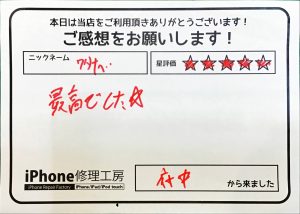 本日は当店をご利用頂きありがとうございます!
ご感想をお願いします!
ニックネーム
星評価 ★★★★★
最高でした☆
iPhone修理工房
iPhone Repair Factory iPhone/iPad/iPod touch
府中 から来ました